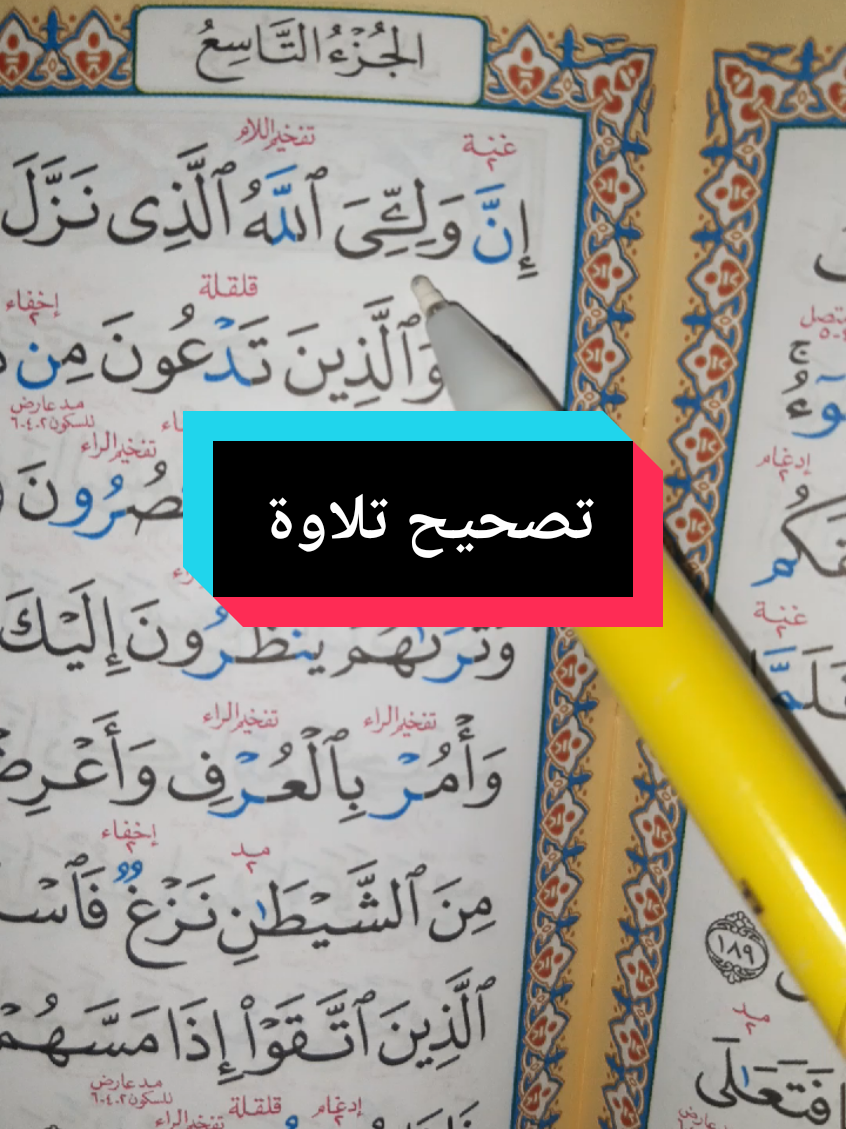 الجُزْءُ التَّاسِعُ
تفخيم اللام
غنة ٢
إِنَّ وَلِـِّۧىَ ٱللَّهُ ٱلَّذِى نَزَّلَ
قلقلة
إخفاء ٢
وَٱلَّذِينَ تَدْعُونَ مِن
مد عارض للسكون ٢-٤-٦
تفخيم الراء
تصحيح تلاوة
وَتَرَىٰهُمْ يَنظُرُونَ إِلَيْكَ
تفخيم الراء
تفخيم الراء
وَأْمُرْ بِٱلْعُرْفِ وَأَعْرِضْ
إخفاء ٢
مد ٢
مِنَ ٱلشَّيْطَـٰنِ نَزْغٌ
ٱلَّذِينَ ٱتَّقَوْا۟ إِذَا مَسَّهُمْ
مد عارض للسكون ٢-٤-٦
إدغام ٢
قلقلة
تفخيم الراء
إدغام ٢
غنة ٢
١٨٩
مد ٢
فَتَعَـٰلَى